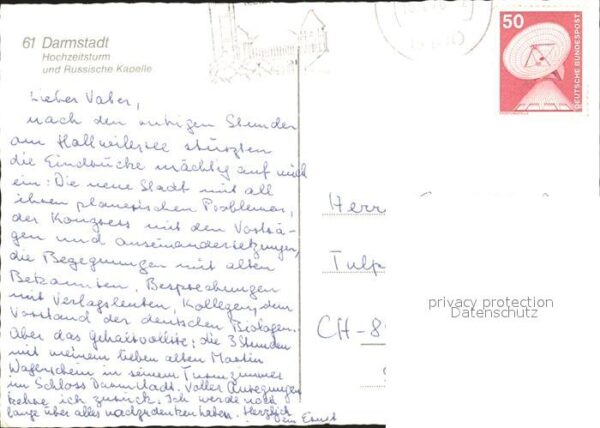 61 Darmstadt
Hochzeitsturm
und Russische Kapelle
50
DEUTSCHE BUNDESPOST
Lieber Vater,
nach den ruhigen Stunden
am Hallwilersee stürzten
die Eindrücke mächtig auf mich
ein: Die neue Stadt mit all
ihren planerischen Problemen,
der Kongress mit den Vorträ-
gen und Auseinandersetzungen,
die Begegnungen mit alten
Bekannten, Besprechungen
mit Verlagsleuten, Kollegen, dem
Vorstand der deutschen Biologen.
Aber das Gehaltvollste: die 3 Stunden
mit meinem lieben alten Martin
Wagenschein in seinem Turmzimmer
im Schloss Darmstadt. Voller Anregungen
kehre ich zurück. Ich werde noch
lange über alles nachzudenken haben. Herzlich
Dein Ernst
Herr
Tulp
CH-8
privacy protection
Datenschutz